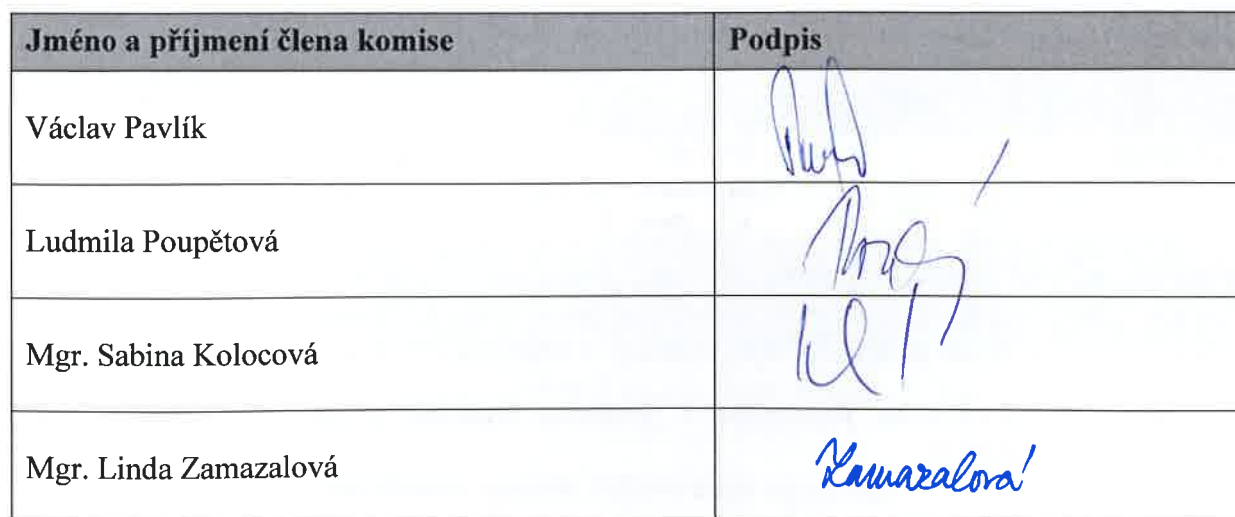 Jméno a příjmení člena komise Podpis
Václav Pavlík
Ludmila Poupětová
Mgr. Sabina Kolocová
Mgr. Linda Zamazalová Zamazalová